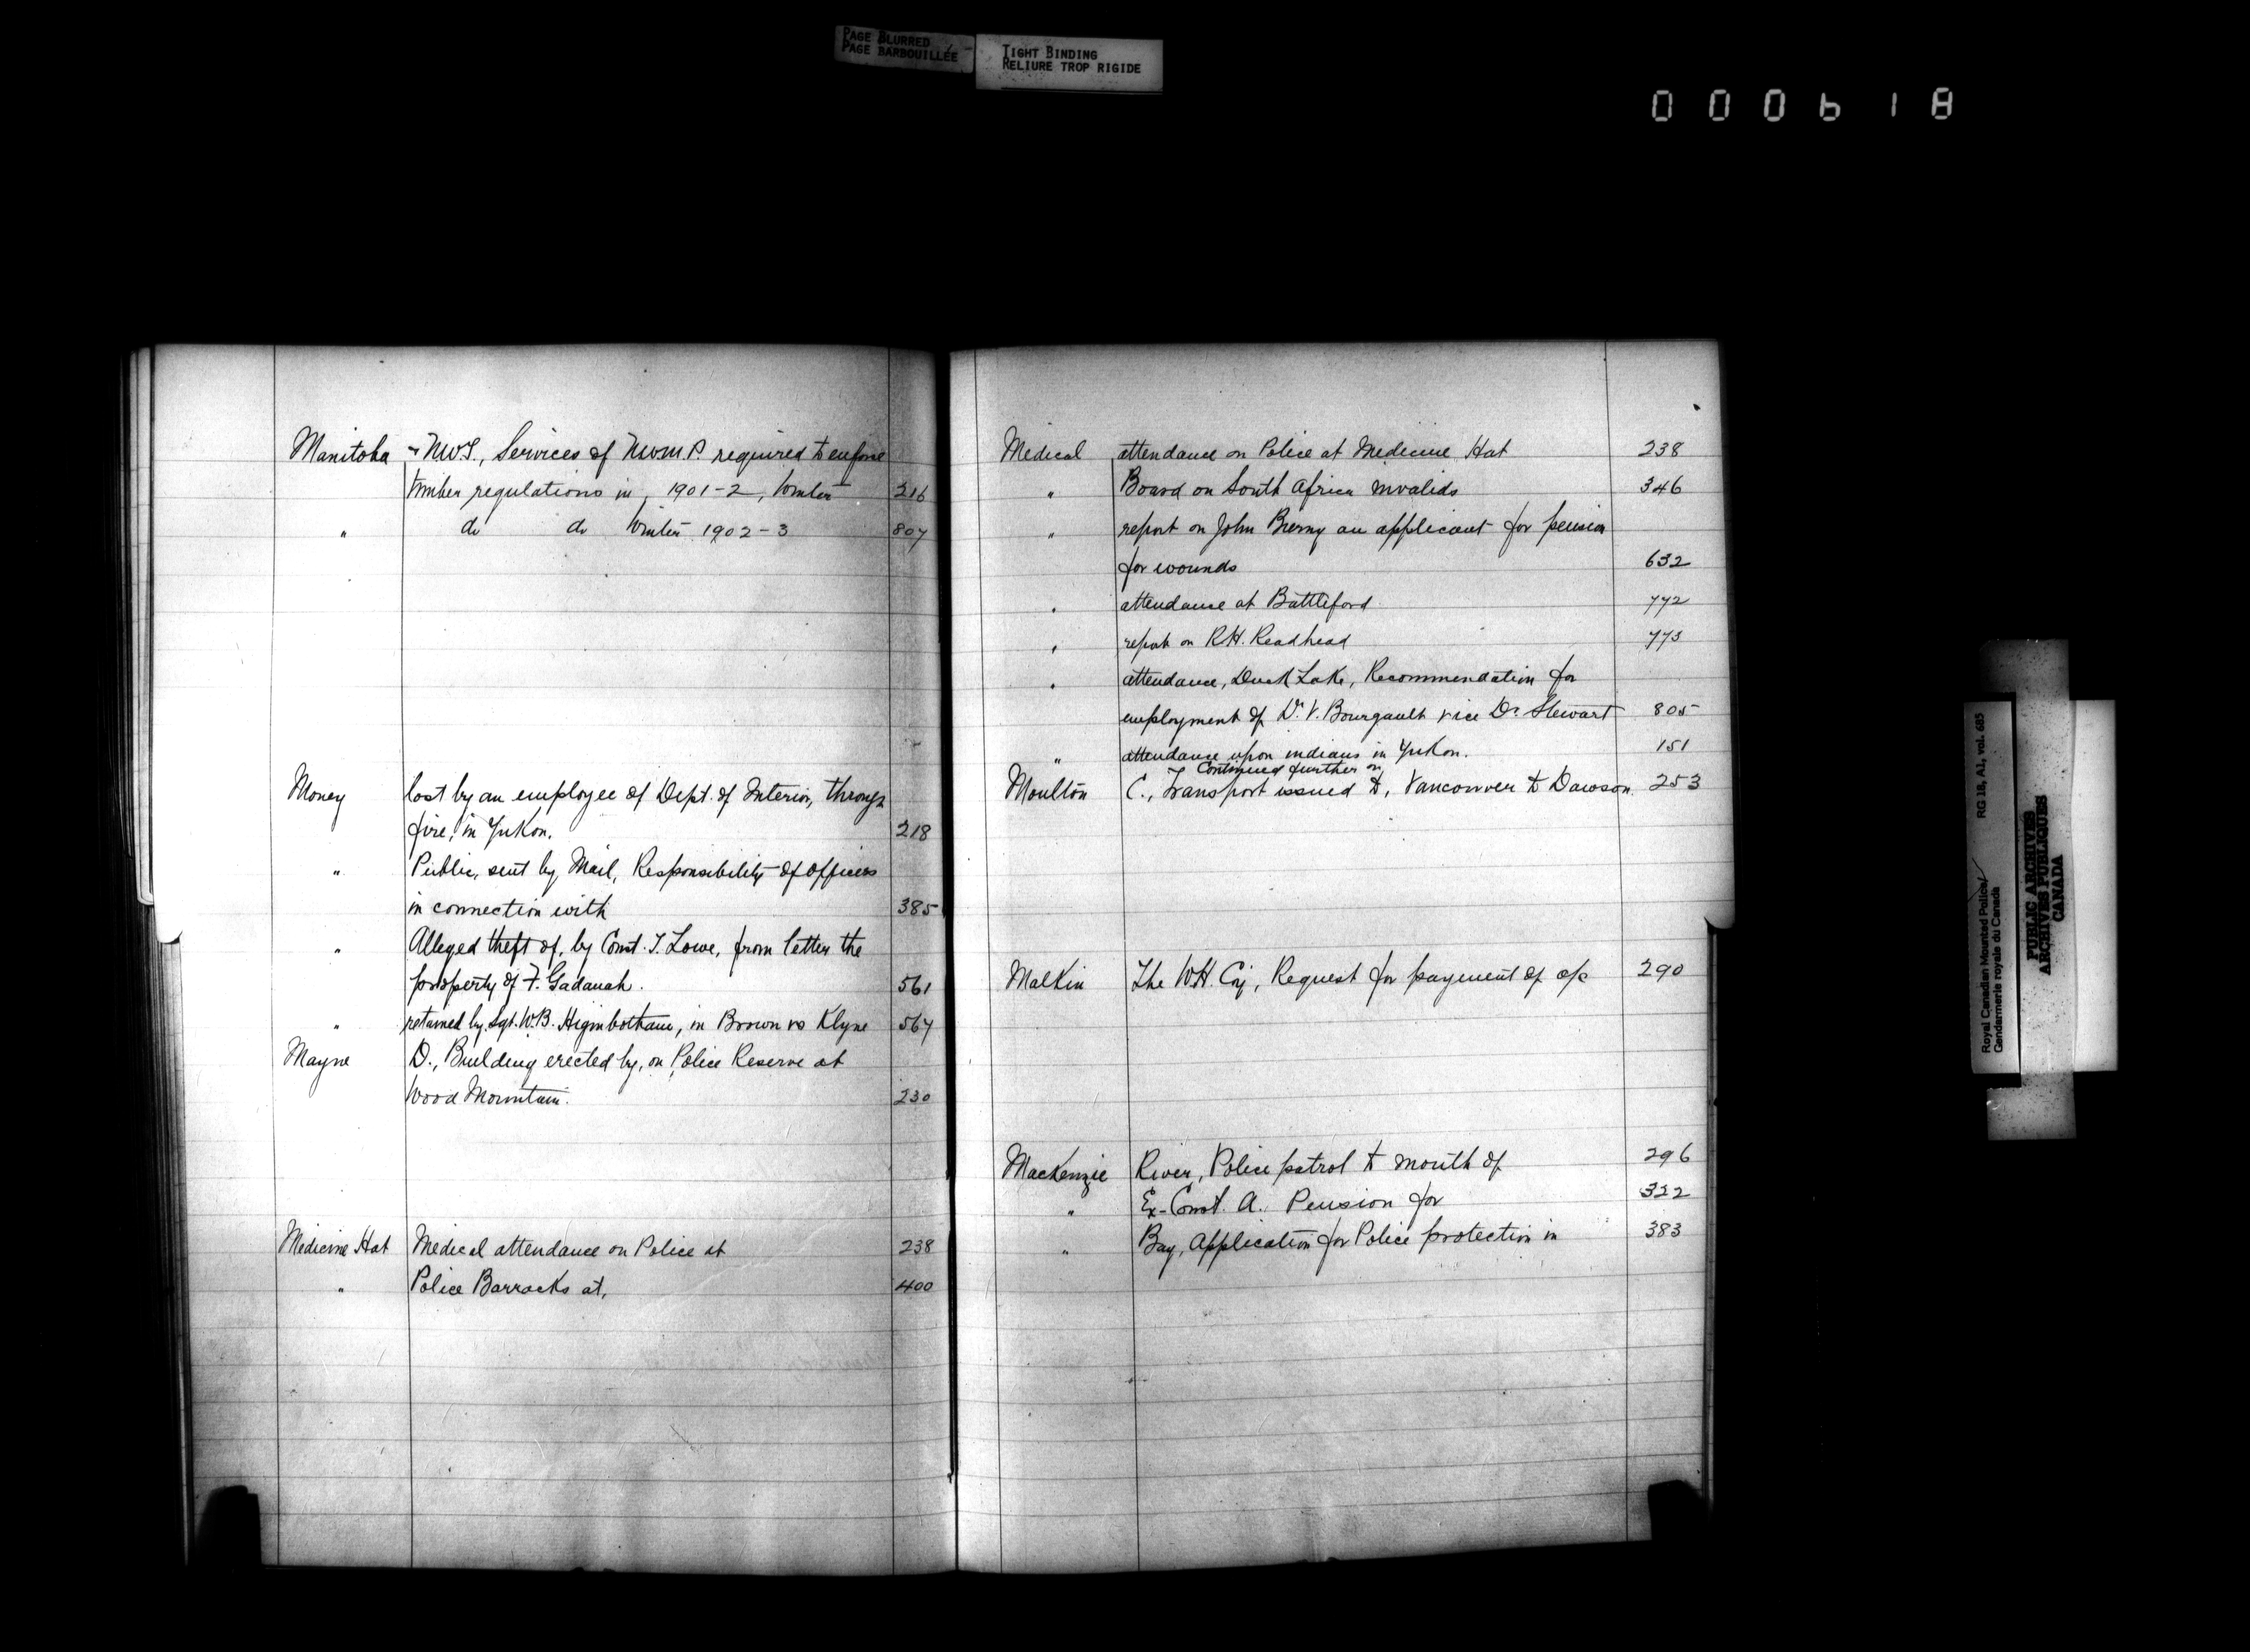 PAGE BLURRED
PAGE BARBOUILLÉE
TIGHT BINDING
RELIURE TROP RIGIDE
000618
Manitoba & N.W.T., Services of N.W.M.P. required to enforce
timber regulations in, 1901-2, Winter 216
" do do Winter 1902-3 807
Money lost by an employee of Dept. of Interior, through
fire, in Yukon. 218
" Public, sent by Mail, Responsibility of Officers
in connection with 385
" Alleged theft of, by Const. T. Lowe, from letter the
property of F. Gadanah. 561
" retained by Sgt. W.B. Higinbotham, in Brown vs Klyne 567
Mayne D., Building erected by, on Police Reserve at
Wood Mountain. 230
Medicine Hat Medical attendance on Police at 238
" Police Barracks at, 400
Medical attendance on Police at Medicine Hat 238
" Board on South Africa invalids 346
" report on John an applicant for pension
for wounds 632
" attendance at Battleford 772
" report on R.H. Readhead 773
" attendance, Duck Lake, Recommendation for
employment of Dr. V. Bourgault vice Dr. Stewart 805
" attendance upon indians in Yukon. 151
Continued further on
Moulton C., Transport issued to, Vancouver to Dawson. 253
Malkin The W.H. Coy, Request for payment of a/c 290
Mackenzie River, Police patrol to mouth of 296
" Ex-Const. A. Pension for 322
" Bay, Application for Police protection in 383
Royal Canadian Mounted Police/
Gendarmerie royale du Canada
RG 18, A1, vol. 685
PUBLIC ARCHIVES
ARCHIVES PUBLIQUES
CANADA